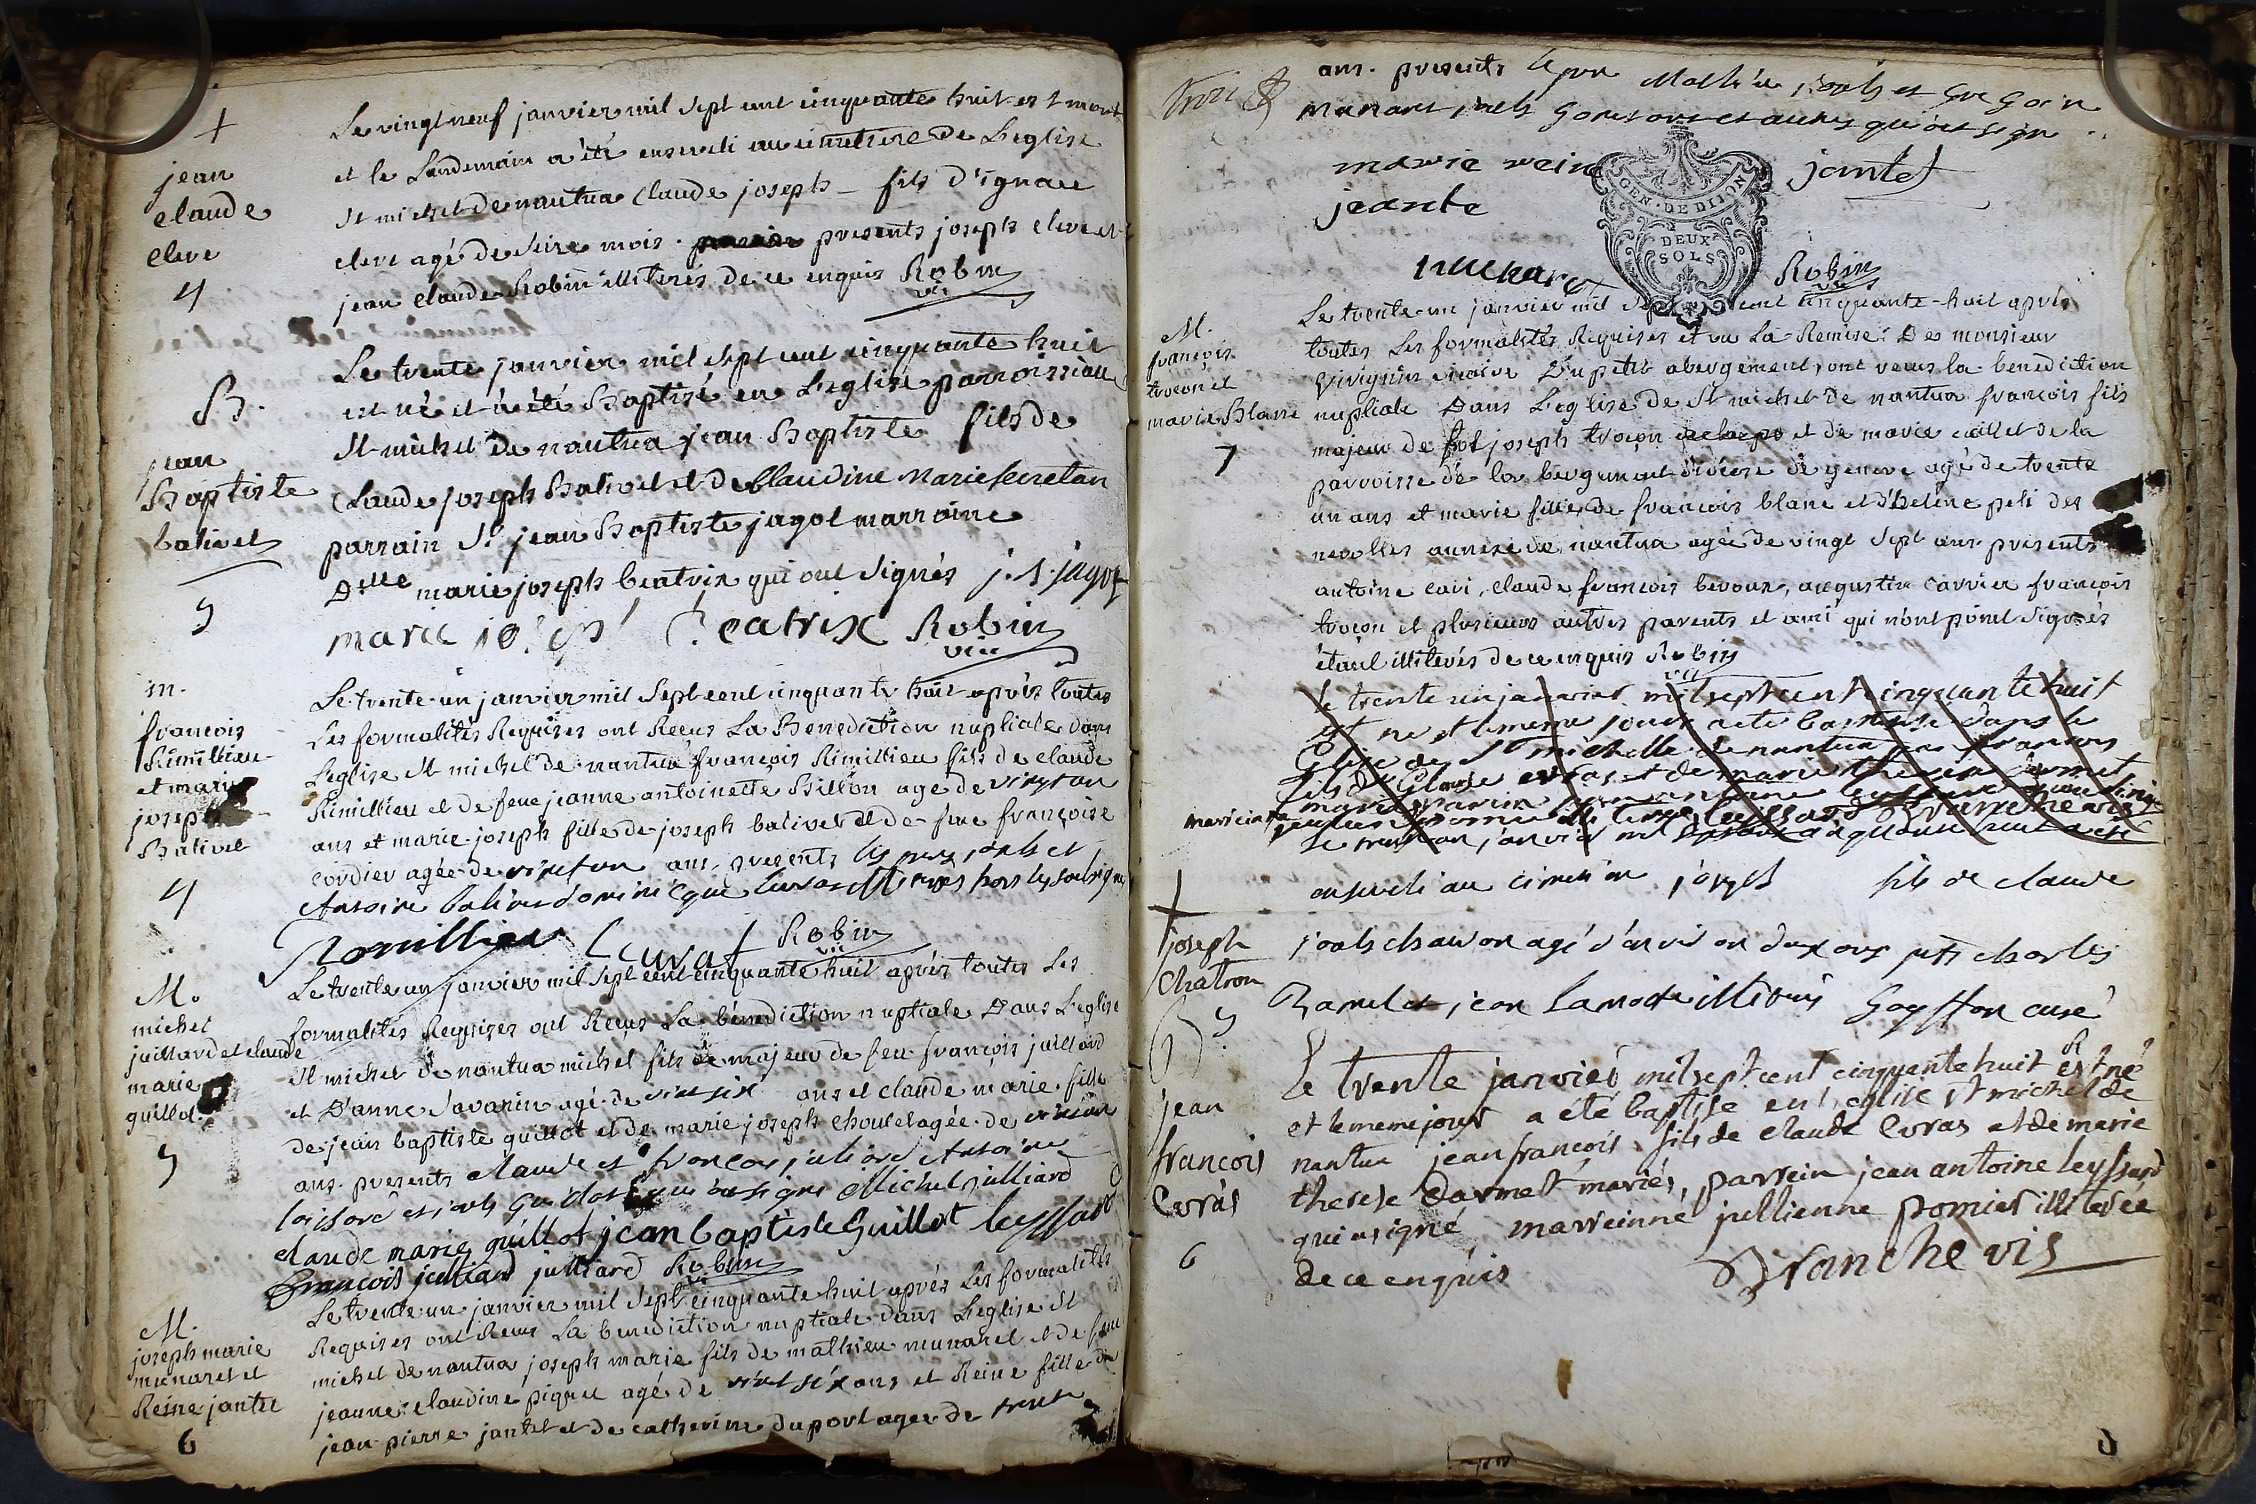 +
jean
claude
cleve
4
Le vingt neuf janvier mil sept cent cinquante huit est mort
et le Landemain a été enseveli au cimetiere de L'eglise
St michel de nantua Claude joseph - fils d'ignace
cleve agé de seize mois. presents joseph cleve et
jean claude Robin illiterés de ce enquis Robin
vic
B.
jean
Baptiste
balivet
5
Le trente janvier mil sept cent cinquante huit
est né et a été Baptisé en L'eglise parroissiale
St michel De nantua jean Baptiste fils de
Claude joseph Balivet et de Claudine Marie secretan
parrain Sr jean Baptiste jagot marraine
Delle marie joseph beatrix qui ont signés j. B. jagot
marie jo. Beatrix Robin
vic
m.
francois
Rimillieu
et marie
joseph
Balivet
4
Le trente-un janvier mil sept cent cinquante huit après toutes
Les formalités Requises ont Reçus La Benediction nuptiale dans
L'eglise St michel de nantua françois Rimillieu fils de claude
Rimillieu et de feue jeanne antoinette Billon agé de vingt un
ans et marie joseph fille de joseph balivet et de feue françoise
cordier agée de vint un ans. presents les peres, joseph et
Antoine balivet dominique cuvat illiterés hors les soussignés
Romillieu Cuvat Robin
vic
M.
michel
juillard et claude
marie
guillot
5
Le trente un janvier mil sept cent cinquante huit après toutes Les
formalités Requises ont Reçus La bénédiction nuptiale Dans L'eglise
St michel de nantua michel fils de majeur de feu françois juillard
et D'anne Savarin agé de vint six ans et claude marie fille
de jean baptiste guillot et de marie joseph choulet agée de
ans. presents claude et françois juliard Antoine
laissard et joseph Guillot qui ont signé Michel julliard
claude marie guillot jean baptiste Guillot leyssard
François julliard julliard Robin
vic
M.
joseph marie
munaret et
Reine jantet
6
Le trente un janvier mil sept cinquante huit après Les formalités
Requises ont Reçus La benediction nuptiale dans L'eglise St
michel de nantua joseph marie fils de mathieu munaret et de feue
jeanne claudine piquet agé de vint six ans et Reine fille de
jean pierre jantet et de catherine duport agée de trente
ans. presents le pere Mathieu, joseph et Gregoire
manaret, joseph et autres qui ont signé
marie rein
jeante
jantet
GEN. DE DIJON
DEUX
SOLS
munare
Robin
vic
M.
françois
troçon et
marie Blanc
7
Le trente-un janvier mil sept cent cinquante-huit après
toutes Les formalités Requises et vu La Remise De monsieur
vivignin curé Du petit abergement, ont reçus la benediction
nuptiale Dans L'eglise de St michel de nantua françois fils
majeur de feu joseph troçon et de marie caillet de la
parroisse de la bergement diocèse de geneve agé de trente
un ans et marie fille de françois blanc et d'helene peli des
neyrolles annexe de nantua agée de vingt sept ans. presents
antoine cari, claude françois bevoux, augustin carrier françois
troçon et plusieurs autres parents et ami qui n'ont point signés
étant illiterés de ce enquis Robin
vic
le trente un janvier mil sept cent cinquante huit
est né et le meme jour a été baptisé dans le
Eglise de St michelle de nantua jean francois
fils de Claude evras et de marie therese darmet
mariés parrin
+
joseph
Chatron
5
enseveli au cimetiere joseph fils de claude
joseph chatron agé d'environ deux ans pts charles
Ramel et jean lamotte illiterés Goyffon curé
B
jean
françois
Evras
6
Le trente janvier mil sept cent cinquante huit est né
et le meme jour a été baptise en l'eglise St michel de
nantua jean françois fils de claude Evras et de marie
therese darmet mariés, parrein jean antoine leyssard
qui a signé marreinne jullienne pomier illiterée
de ce enquis
D Branche vis